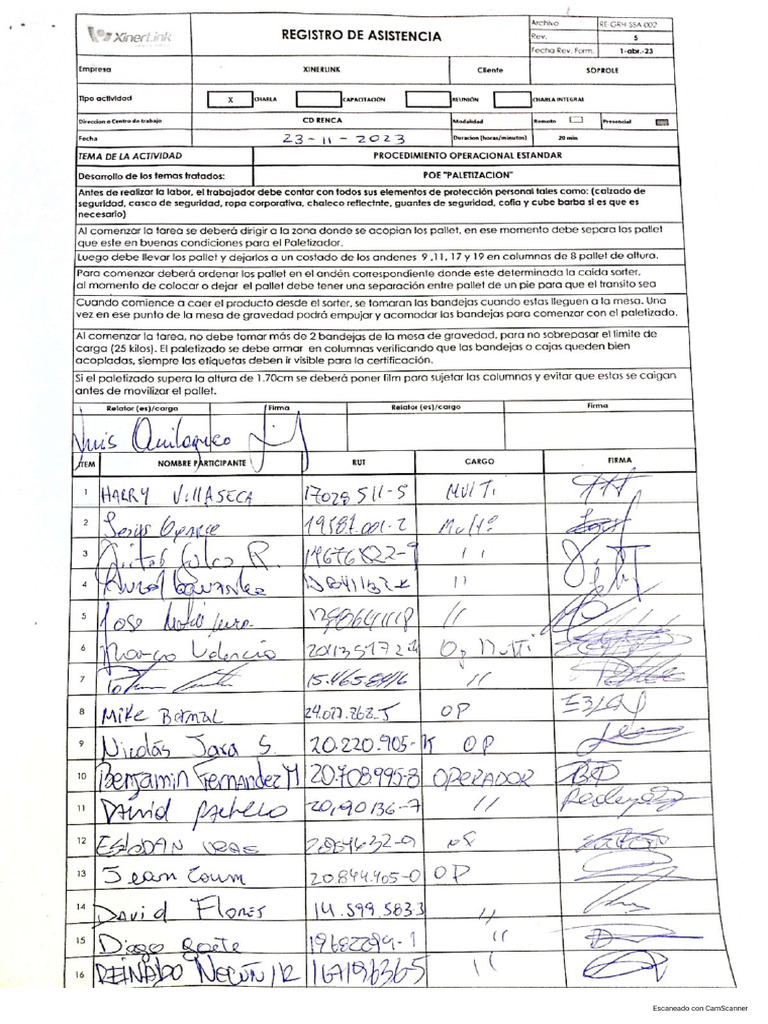 XinerLink
REGISTRO DE ASISTENCIA
Archivo RE-GRH-SSA-002
Rev. 5
Fecha Rev. Form. 1-abr.-23
Empresa XINERLINK Cliente SOPROLE
Tipo actividad X CHARLA CAPACITACIÓN REUNIÓN CHARLA INTEGRAL
Direccion o Centro de trabajo CD RENCA Modalidad Remoto Presencial
Fecha 23-11-2023 Duracion (horas/minutos) 20 min
TEMA DE LA ACTIVIDAD PROCEDIMIENTO OPERACIONAL ESTANDAR
Desarrollo de los temas tratados: POE "PALETIZACION"
Antes de realizar la labor, el trabajador debe contar con todos sus elementos de protección personal tales como: (calzado de
seguridad, casco de seguridad, ropa corporativa, chaleco reflectnte, guantes de seguridad, cofia y cube barba si es que es
necesario)
Al comenzar la tarea se deberá dirigir a la zona donde se acopian los pallet, en ese momento debe separa los pallet
que este en buenas condiciones para el Paletizador.
Luego debe llevar los pallet y dejarlos a un costado de los andenes 9 ,11, 17 y 19 en columnas de 8 pallet de altura.
Para comenzar deberá ordenar los pallet en el andén correspondiente donde este determinada la caida sorter,
al momento de colocar o dejar el pallet debe tener una separación entre pallet de un pie para que el transito sea
Cuando comience a caer el producto desde el sorter, se tomaran las bandejas cuando estas lleguen a la mesa. Una
vez en ese punto de la mesa de gravedad podrá empujar y acomodar las bandejas para comenzar con el paletizado.
Al comenzar la tarea, no debe tomar más de 2 bandejas de la mesa de gravedad, para no sobrepasar el limite de
carga (25 kilos). El paletizado se debe armar en columnas verificando que las bandejas o cajas queden bien
acopladas, siempre las etiquetas deben ir visible para la certificación.
Si el paletizado supera la altura de 1.70cm se deberá poner film para sujetar las columnas y evitar que estas se caigan
antes de movilizar el pallet.
Relator (es)/cargo Firma Relator (es)/cargo Firma
Luis Quilaqueo
ITEM NOMBRE PARTICIPANTE RUT CARGO FIRMA
1 HARRY VILLASECA 17028511-5 MULTI
2 19581.001-2 Multi
3 R. 11
4 11
5 Jose 11
6 Marco Valencia Op Multi
7 11
8 MIKE Bernal OP
9 Nicolás Jara S. 20.220.905-K OP
10 Benjamin Fernandez M 20.708.995-8 OPERADOR
11 DAVID PACHECO 20,190136-7 11
12
13 Jean 20.844.905-0 OP
14 DAVID FLORES 14.599.583-3 11
15 Diego 11
16 REINALDO 11
Escaneado con CamScanner